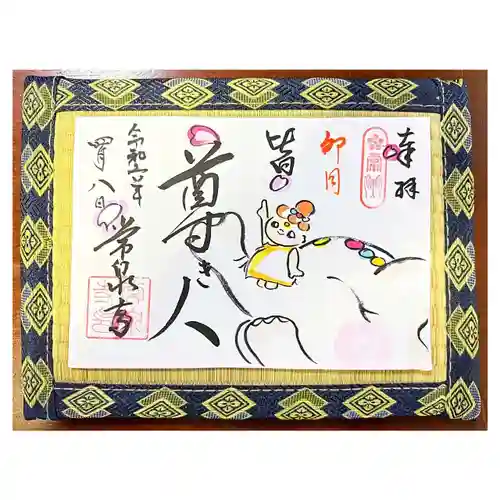 奉拝
卯月
皆
尊き人
令和六年
四月八日
常泉寺